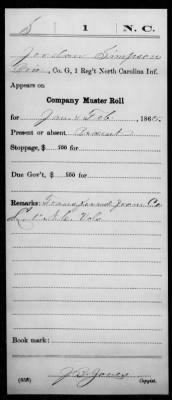 S 1 N.C.
Jordan Simpson
Pvt, Co. G, 1 Reg't North Carolina Inf.
Appears on
Company Muster Roll
for Jan & Feb, 1865.
Present or absent Present
Stoppage, $ 100 for
Due Gov't, $ 100 for
Remarks: Transferred from Co
L 1" N.C. Vols
Book mark:
J B Jones
(858) Copyist.